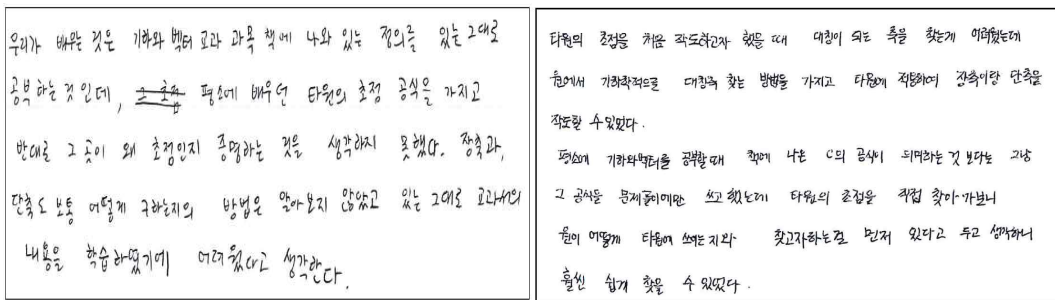 우리가 배우는 것은 기하와 벡터 교과 과목 책에 나와 있는 정의를 있는 그대로
공부하는 것인데, 평소에 배우던 타원의 초점 공식을 가지고
반대로 그 곳이 왜 초점인지 증명하는 것을 생각하지 못했다. 장축과,
단축도 보통 어떻게 구하는지의 방법은 알아보지 않았고 있는 그대로 교과서의
내용을 학습하였기에 어려웠다고 생각한다.
타원의 초점을 처음 작도하고자 했을 때 대칭이 되는 축을 찾는게 어려웠는데
원에서 기하학적으로 대칭축 찾는 방법을 가지고 타원에 적용하여 장축이랑 단축을
작도할 수 있었다.
평소에 기하와벡터를 공부할때 책에 나온 C의 공식이 의미하는 것 보다는 그냥
그 공식을 문제풀이에만 쓰고 했는데 타원의 초점을 직접 찾아가보니
원이 어떻게 타원에 쓰이는지와 찾고자하는걸 먼저 있다고 두고 생각하니
훨씬 쉽게 찾을 수 있었다.